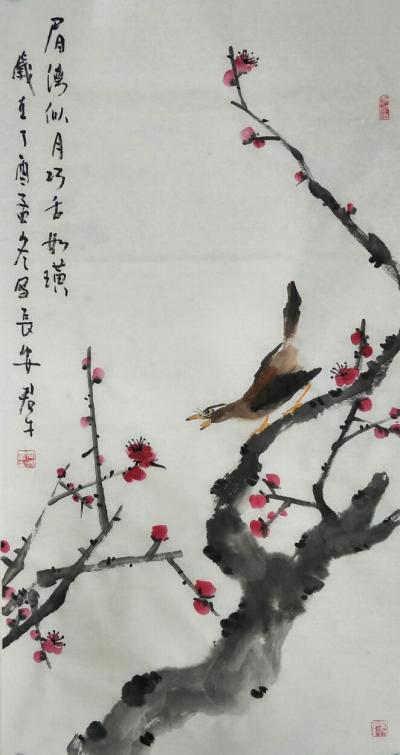 眉湾似月巧舌如璜
岁在丁酉孟冬写长安君午